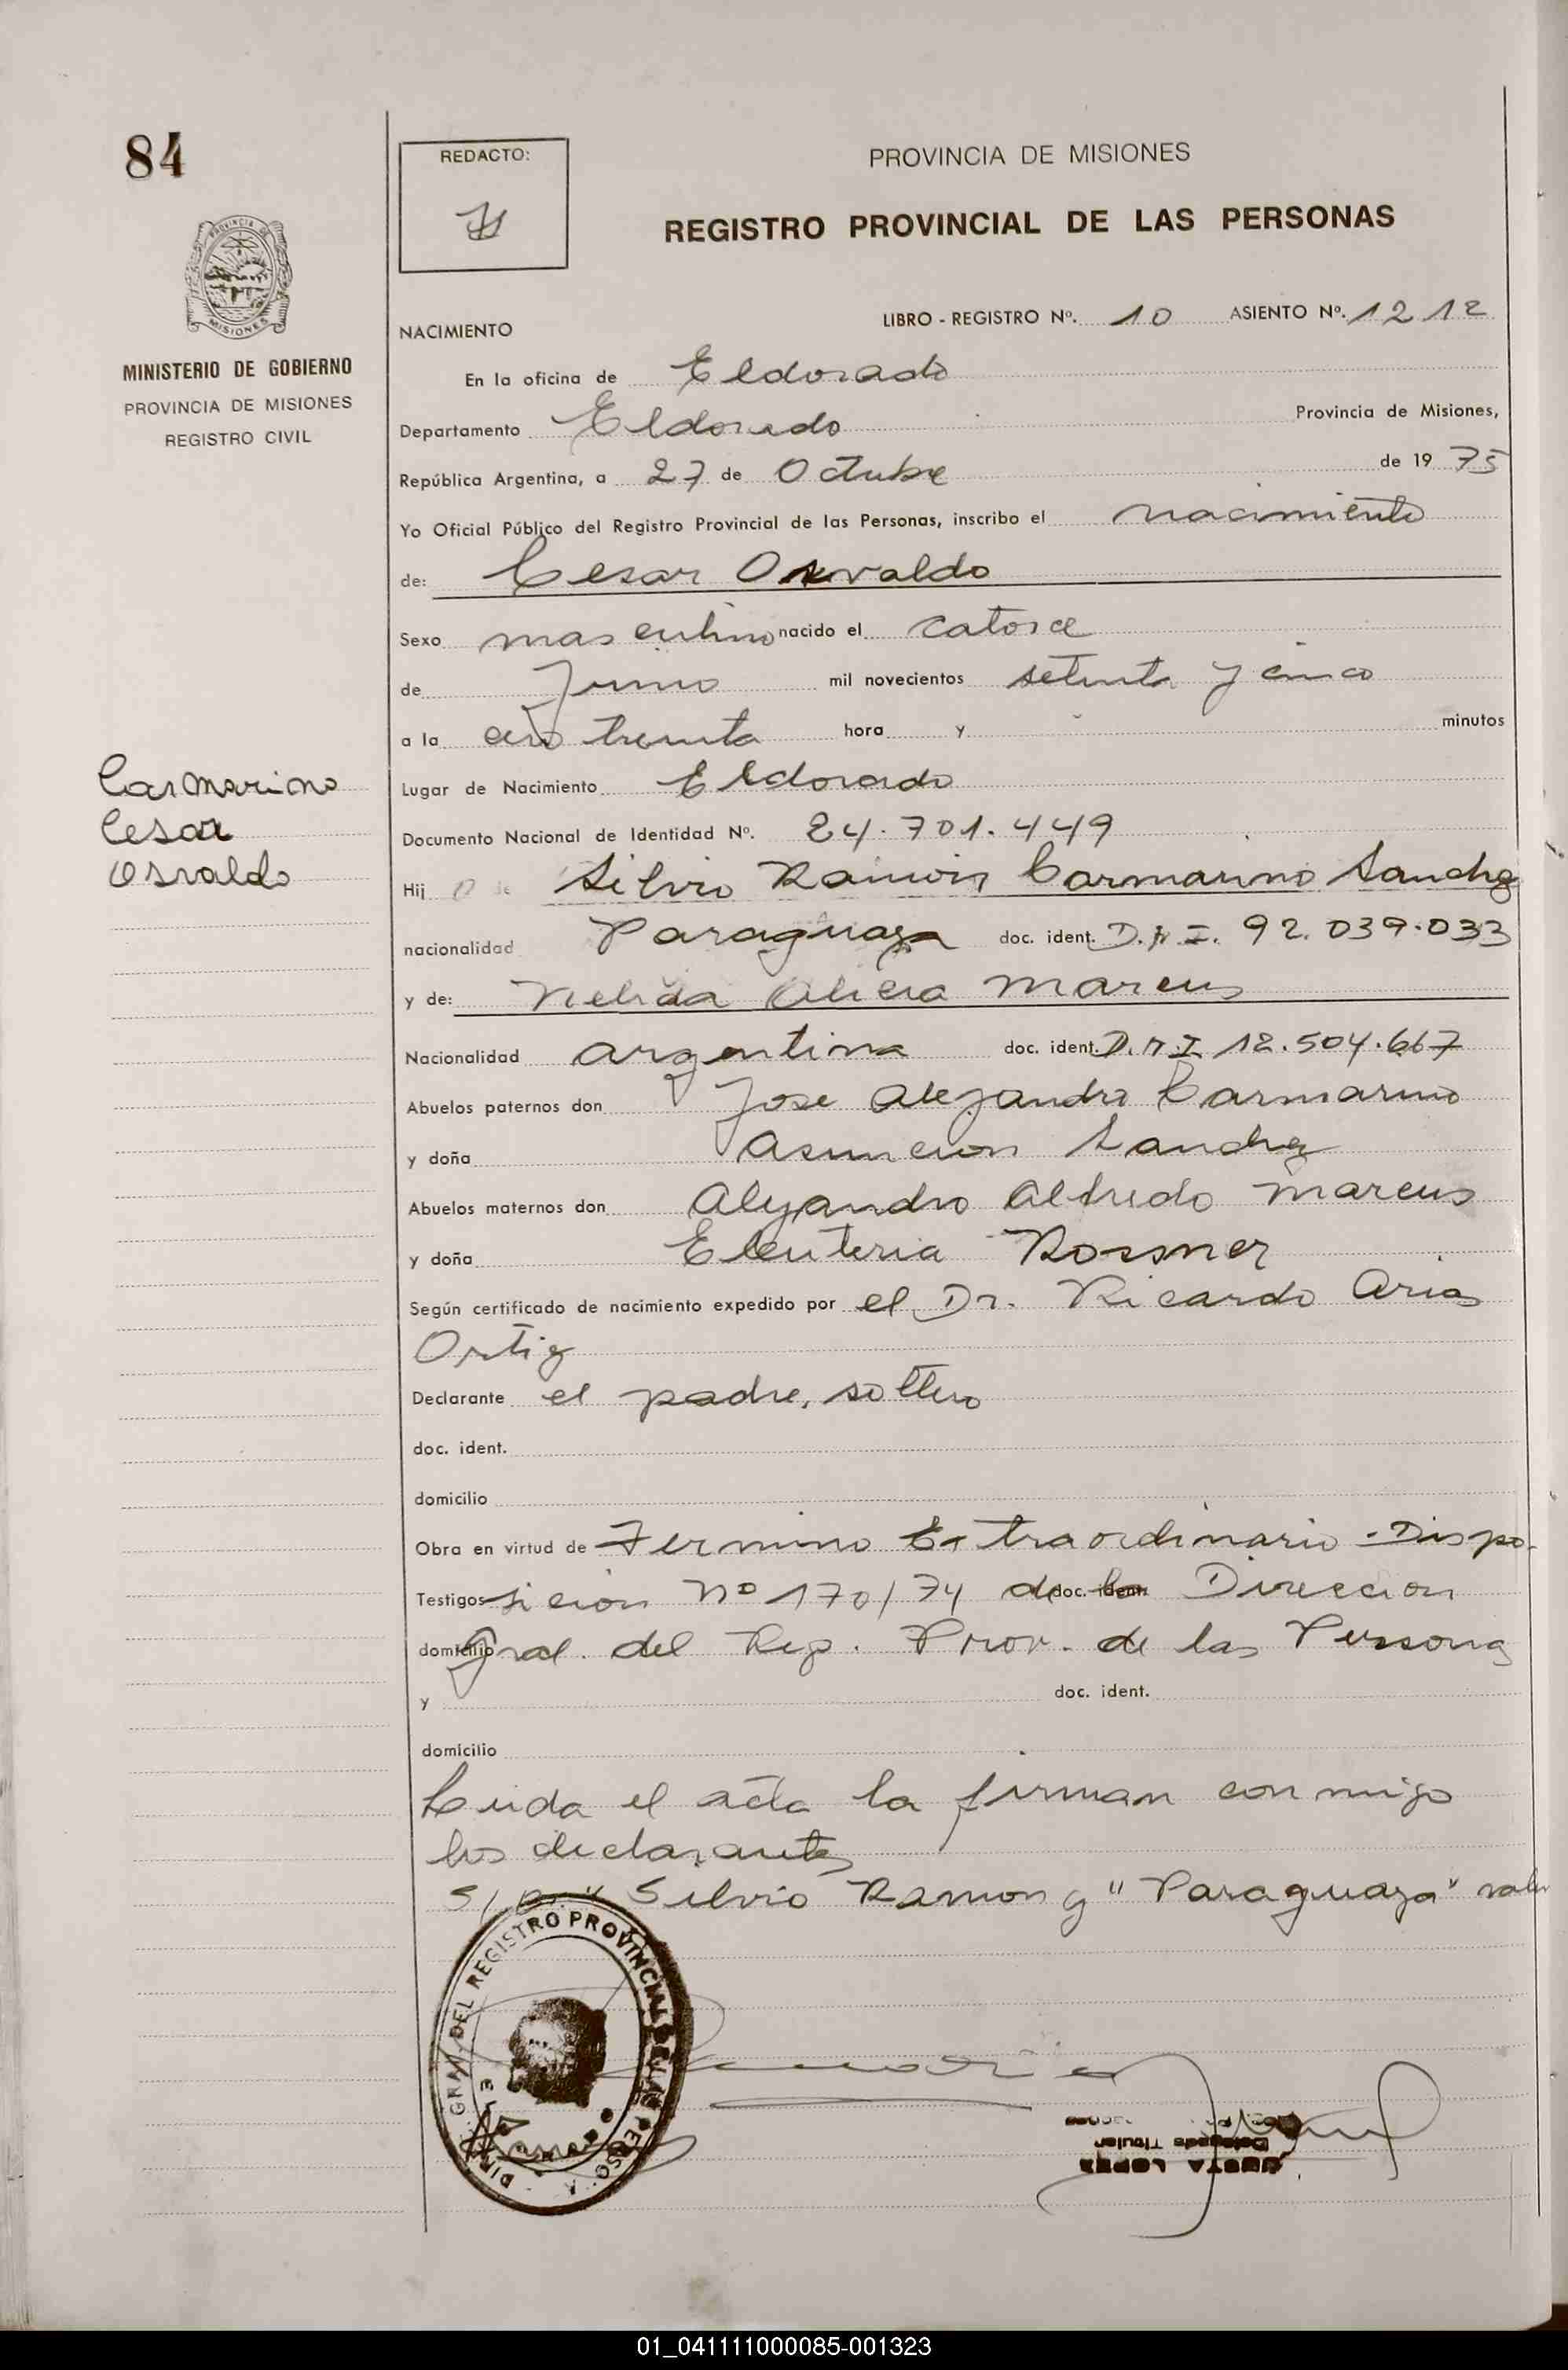 84
REDACTO:
PROVINCIA DE MISIONES
REGISTRO PROVINCIAL DE LAS PERSONAS
PROVINCIA DE
MISIONES
MINISTERIO DE GOBIERNO
PROVINCIA DE MISIONES
REGISTRO CIVIL
NACIMIENTO
LIBRO - REGISTRO Nº. 10 ASIENTO Nº. 1212
En la oficina de Eldorado
Departamento Eldorado Provincia de Misiones,
República Argentina, a 27 de Octubre de 1975
Yo Oficial Público del Registro Provincial de las Personas, inscribo el nacimiento
de: Cesar Osvaldo
Sexo masculino nacido el catorce
de Junio mil novecientos setenta y cinco
a la cero treinta hora y minutos
Carmarino
Cesar
Osvaldo
Lugar de Nacimiento Eldorado
Documento Nacional de Identidad Nº. 24.701.449
Hijo de Silvio Ramon Carmarino Sanchez
nacionalidad Paraguaya doc. ident. D.N.I. 92.039.033
y de: Nelida Alicia Marcus
Nacionalidad argentina doc. ident. D.N.I 12.504.667
Abuelos paternos don Jose Alejandro Carmarino
y doña Asuncion Sanchez
Abuelos maternos don Alejandro Alfredo Marcus
y doña Eleuteria Rossner
Según certificado de nacimiento expedido por el Dr. Ricardo Arias
Ortiz
Declarante el padre, soltero
doc. ident.
domicilio
Obra en virtud de Termino Extraordinario - Dispo-
Testigos sicion Nº 170/74 de la doc. ident. Direccion
domicilio Gral. del Reg. Prov. de las Personas
y doc. ident.
domicilio
Leida el acta la firman conmigo
los declarantes
Silvio Ramon y "Paraguaya" vale
GRAL DEL REGISTRO PROVINCIAL DE LAS PERSO
Delegado Titular
LOPEZ
01_041111000085-001323